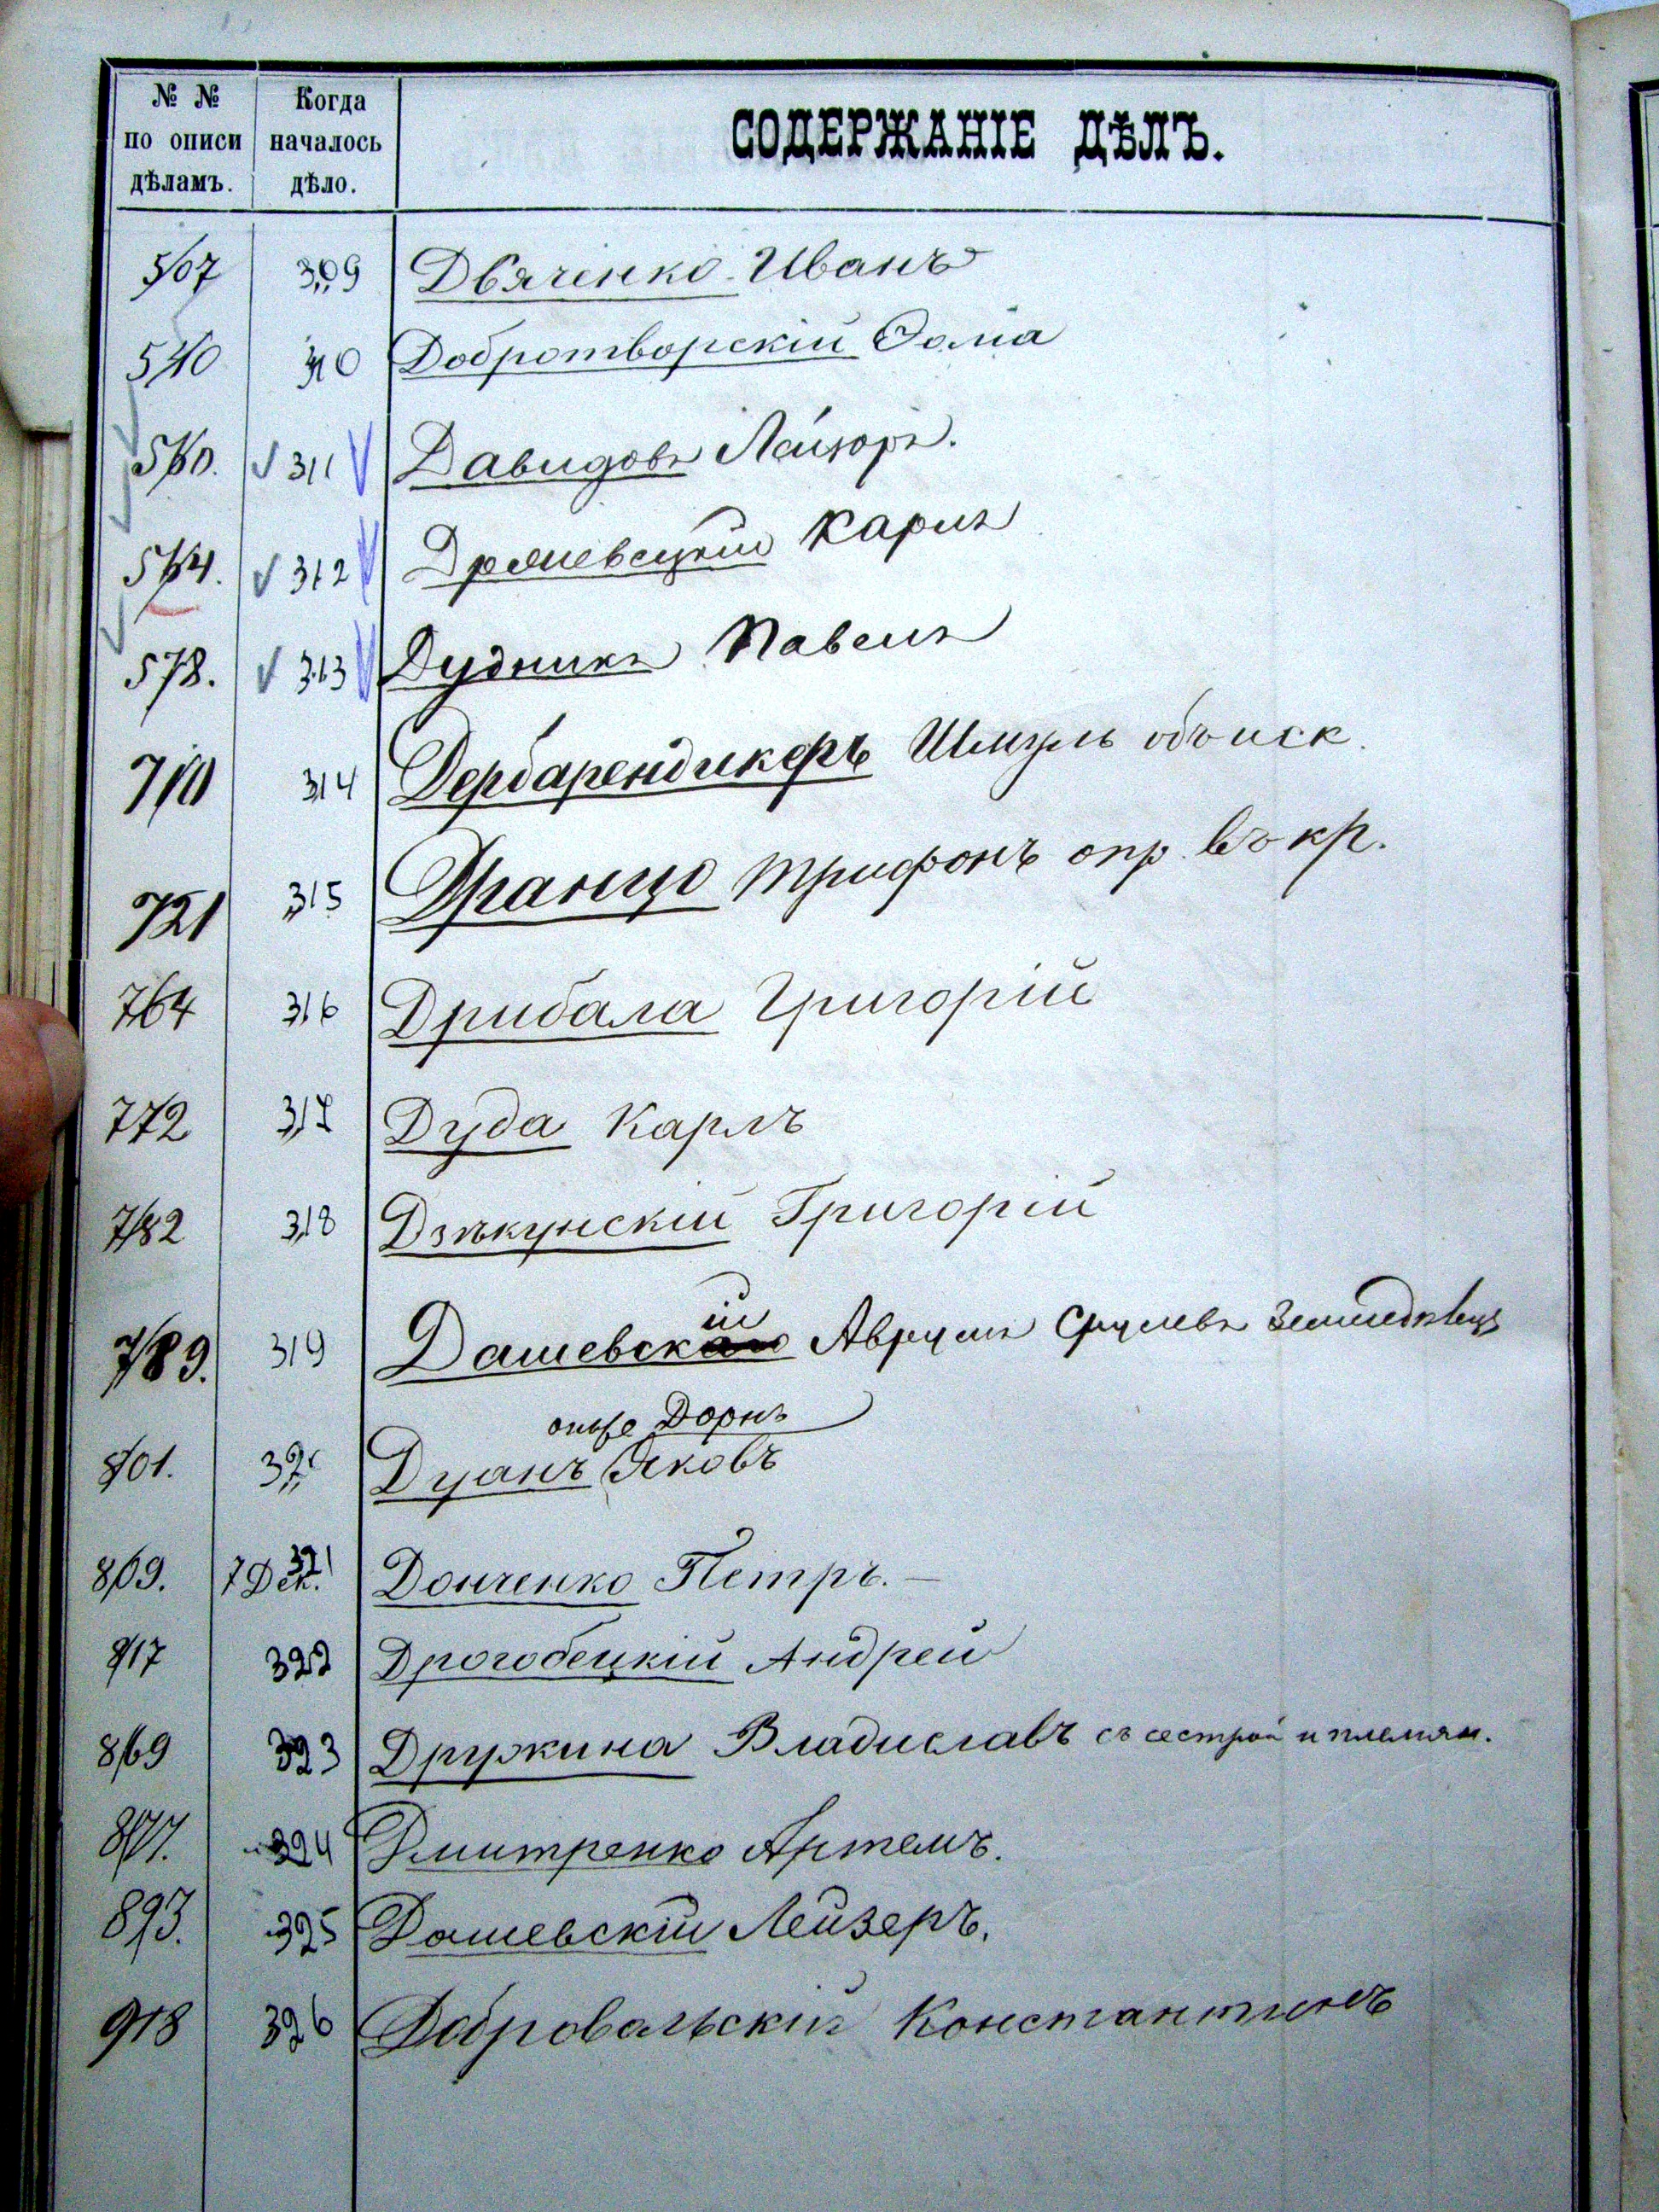 № № по описи дѣламъ.
Когда началось дѣло.
СОДЕРЖАНІЕ ДѢЛЪ.
507 309 Дьяченко Иванъ
540 310 Добротворскій Ѳома
560. 311 Давидовъ Лейзоръ.
564. 312 Карлъ
578. 313 Дудникъ Павелъ
710 314 Дербарендикеръ Шмуль объ иск.
721 315 Дранко Трифонъ опр. въ кр.
764 316 Дрибала Григорій
772 317 Дуда Карлъ
782 318 Дзѣкунскій Григорій
789. 319 Дашевскій Аврумъ Срулевъ
онъ же Дорнъ
801. 320 Дуанъ Яковъ
809. 7 Дек. 321 Донченко Петръ. —
817 322 Дрогобецкій Андрей
869 323 Дружкина Владиславъ съ сестрой и племян.
877. 324 Дмитренко Артемъ.
893. 325 Дашевскій Лейзеръ.
918 326 Добровольскій Константинъ